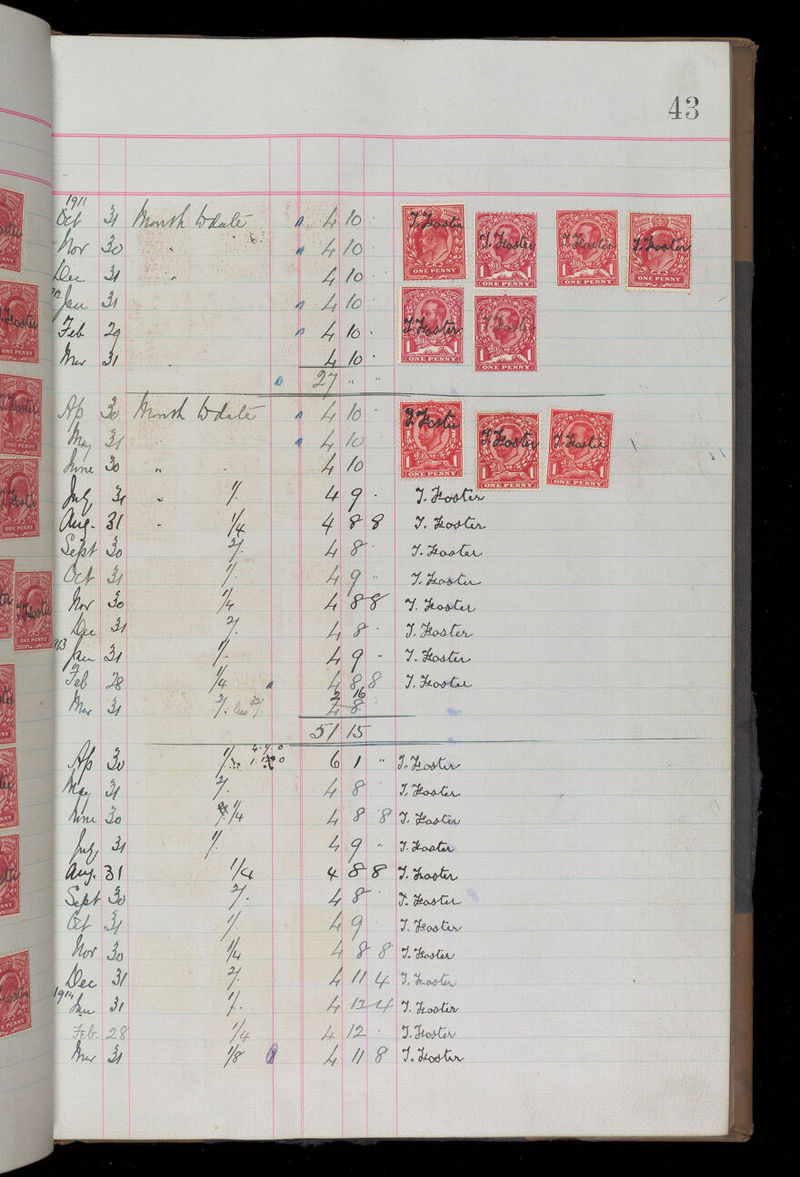 43
1911
Oct 31 Month to date 4 10 T. Foster T. Foster T. Foster T. Foster
Nov 30 " 4 10
ONE PENNY 1 ONE PENNY 1 1 ONE PENNY 1 ONE PENNY
Dec 31 " 4 10
Jan 31 4 10
Feb 29 4 10 T. Foster T. Foster
Mar 31 4 10 1 ONE PENNY 1 1 ONE PENNY 1
27 " "
Ap 30 Month to date 4 10 T. Foster T. Foster T. Foster
May 31 4 10
June 30 " 4 10 1 ONE PENNY 1 1 ONE PENNY 1 1 ONE PENNY 1
July 31 " 1/. 4 9 T. Foster
Aug. 31 " 1/4 4 8 8 T. Foster
Sept 30 2/. 4 8 T. Foster
Oct 31 1/. 4 9 T. Foster
Nov 30 1/4 4 8 8 T. Foster
Dec 31 2/. 4 8 T. Foster
913
Jan 31 1/. 4 9 T. Foster
Feb 28 1/4 4 8 8 T. Foster
2 16
Mar 31 2/. 4 8
51 15
4.9.0
Ap 30 1/. 6 1 " T. Foster
May 31 2/. 4 8 T. Foster
June 30 1/4 4 8 8 T. Foster
July 31 1/. 4 9 " T. Foster
Aug. 31 1/4 4 8 8 T. Foster
Sept 30 2/. 4 8 T. Foster
Oct 31 1/. 4 9 T. Foster
Nov 30 1/4 4 8 8 T. Foster
Dec 31 2/. 4 11 4 T. Foster
1914
Jan 31 1/. 4 12 4 T. Foster
Feb. 28 1/4 4 12 T. Foster
Mar 31 1/8 4 11 8 T. Foster